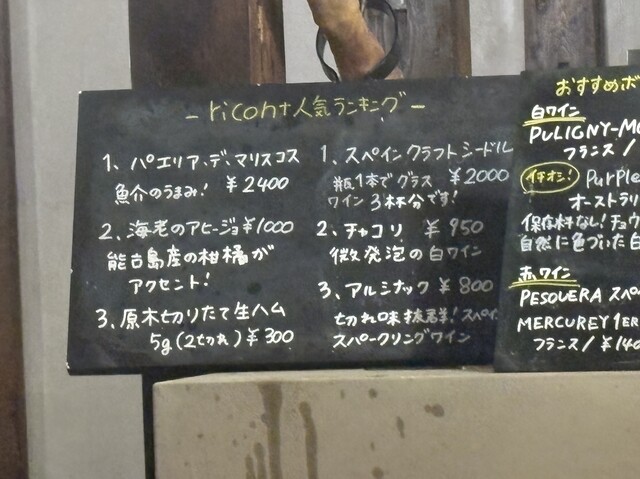 - ricont人気ランキング -
1、パエリア、デ、マリスコス
魚介のうまみ! ¥2400
2、海老のアヒージョ ¥1000
能古島産の柑橘が
アクセント!
3、原木切りたて生ハム
5g(2切れ) ¥300
1、スペインクラフトシードル
瓶1本でグラス ¥2000
ワイン3杯分です!
2、チャコリ ¥950
微発泡の白ワイン
3、アルシナック ¥800
切れ味抜群!スペイン
スパークリングワイン
おすすめボ
白ワイン
PULIGNY-MO
フランス/
イチオシ! Purple
オーストラリ
保存料なし!チョウ
自然に色づいた白
赤ワイン
PESQUERA スペ
MERCUREY 1ER
フランス/¥140